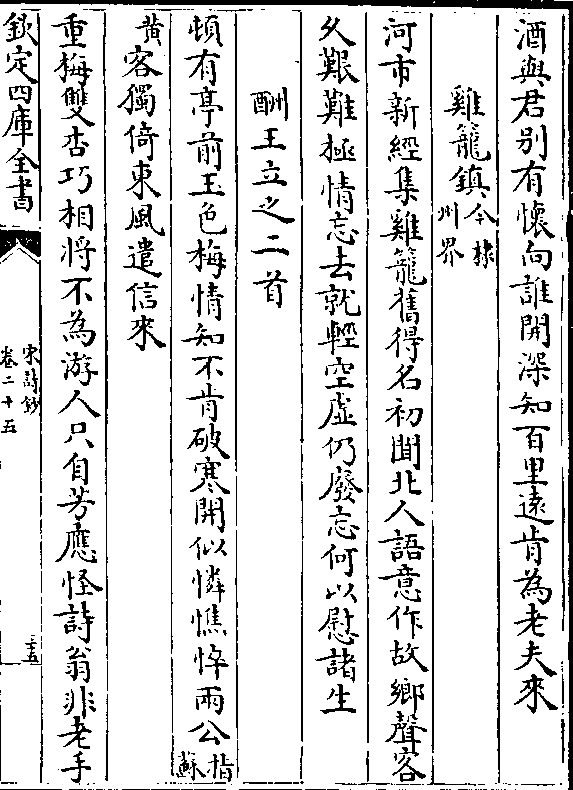 酒與君别有懷向誰開深知百里逺肯為老夫來
雞籠鎮今棣州界
河市新經集雞籠舊得名初聞北人語意作故鄉聲客
久艱難極情忘去就輕空虚仍廢忘何以慰諸生
酬王立之二首
頓有亭前玉色梅情知不肯破寒開似憐憔悴兩公指蘇
黄客獨倚東風遣信來
重梅雙杏巧相將不為游人只自芳應怪詩翁非老手
欽定四庫全書
宋詩鈔
卷二十五
三五